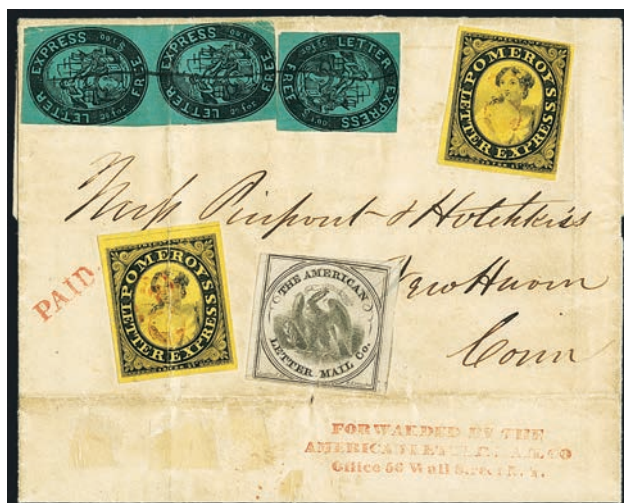 LETTER EXPRESS FREE
LETTER EXPRESS FREE
LETTER EXPRESS FREE
POMEROY'S
LETTER EXPRESS
Mess Pierpont & Hotchkiss
New Haven
Conn
PAID
POMEROY'S
LETTER EXPRESS
THE AMERICAN
LETTER MAIL Co.
FORWARDED BY THE
AMERICAN LETTER MAIL CO
Office 56 Wall Street N.Y.